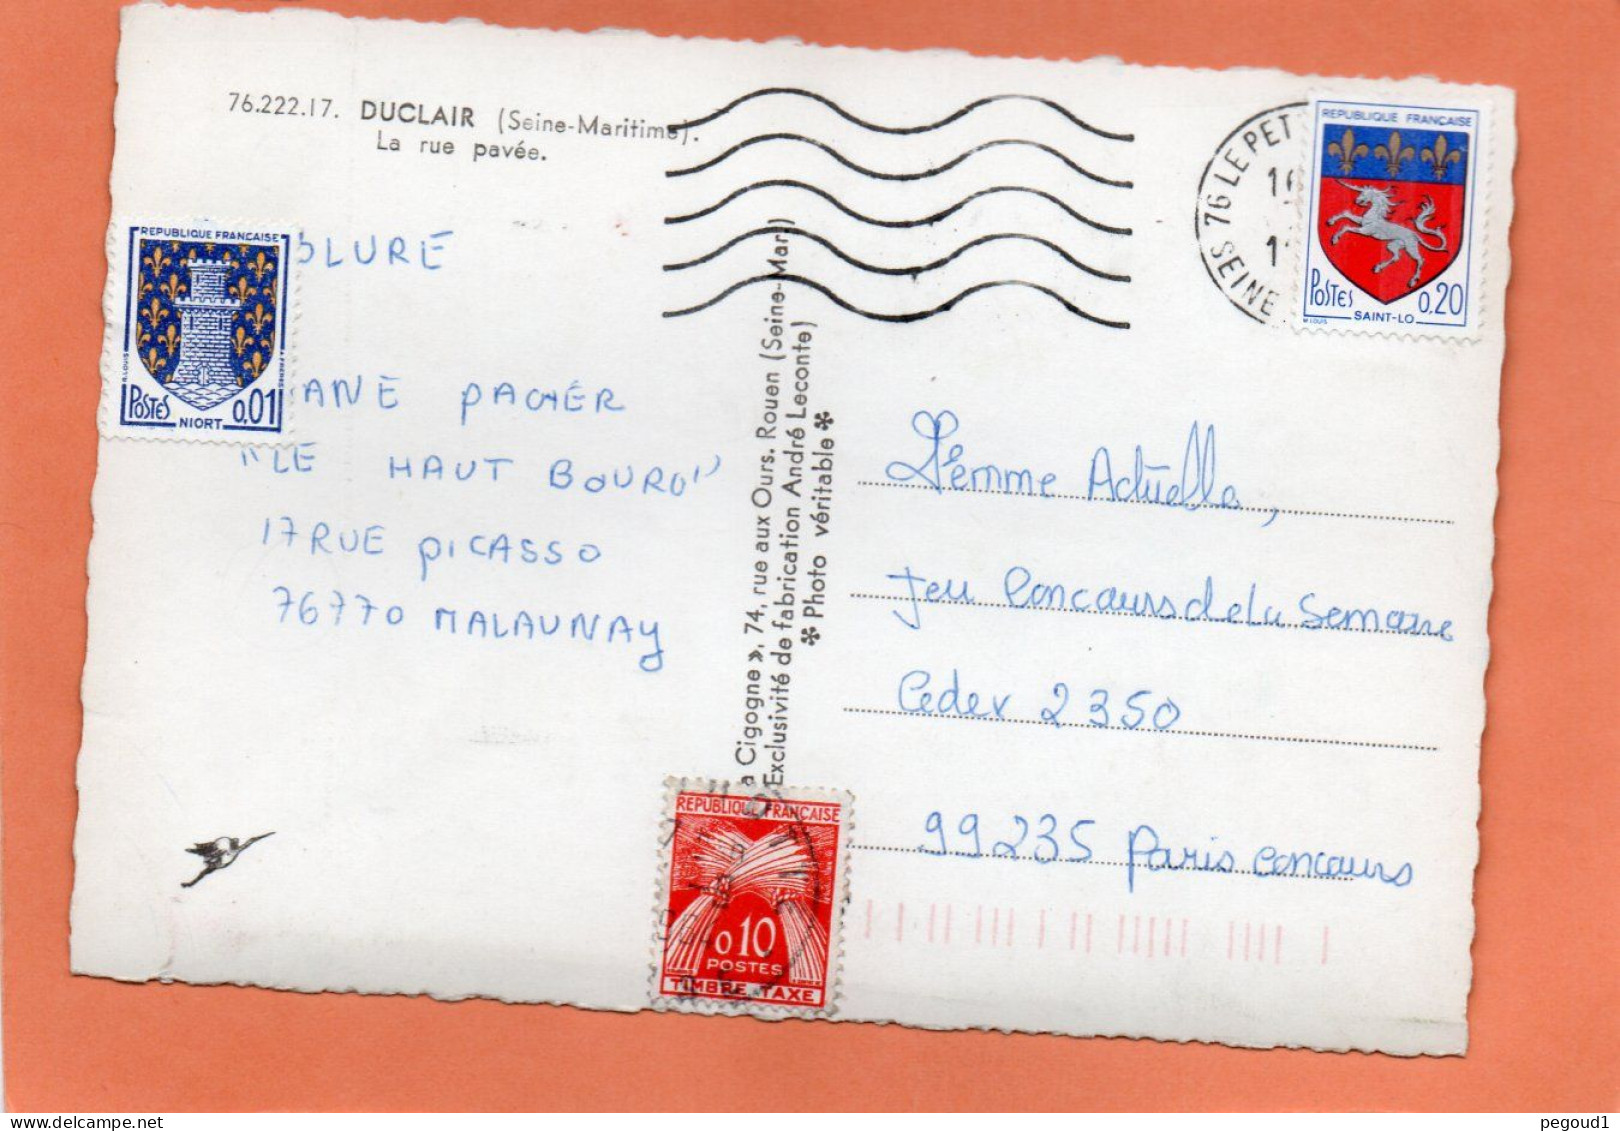 76.222.17. DUCLAIR (Seine-Maritime).
La rue pavée.
REPUBLIQUE FRANÇAISE
POSTES 0,01
NIORT
OLURE
ANE PACHER
"LE HAUT BOURG"
17 RUE PICASSO
76770 MALAUNAY
a Cigogne », 74, rue aux Ours. Rouen (Seine-Mar.)
Exclusivité de fabrication André Leconte)
✻ Photo véritable ✻
76 LE PET
SEINE
REPUBLIQUE FRANÇAISE
POSTES 0,20
SAINT-LO
Femme Actuelle,
Jeu Concours de la Semaine
Cedex 2350
99235 Paris Concours
REPUBLIQUE FRANÇAISE
0,10
POSTES
TIMBRE-TAXE
pegoud1